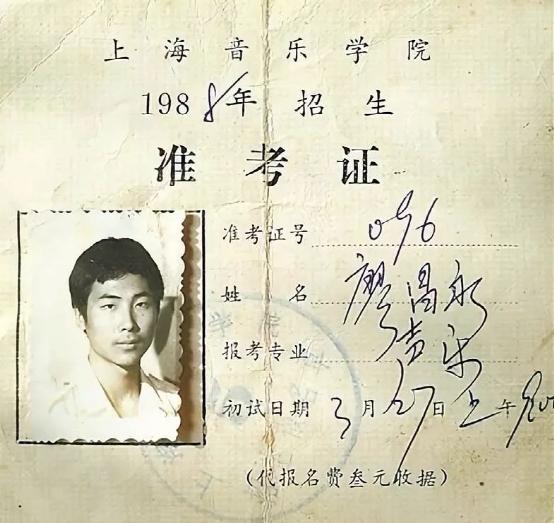 上海音乐学院
1988年招生
准考证
准考证号 096
姓名 廖昌永
报考专业 声乐
初试日期 3月27日上午
(代报名费叁元收据)